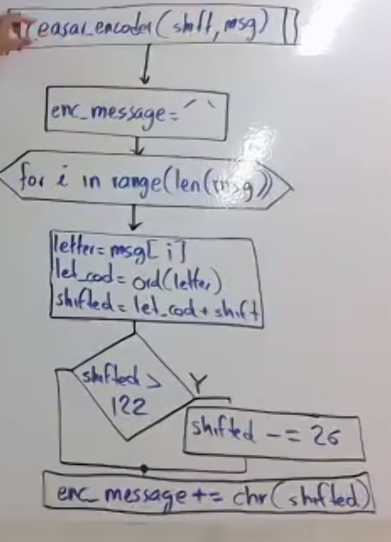 ceasar_encoder(shift, msg)
enc_message = ' '
for i in range(len(msg))
letter = msg[i]
let_cod = ord(letter)
shifted = let_cod + shift
shifted >
122
Y
shifted -= 26
enc_message += chr(shifted)